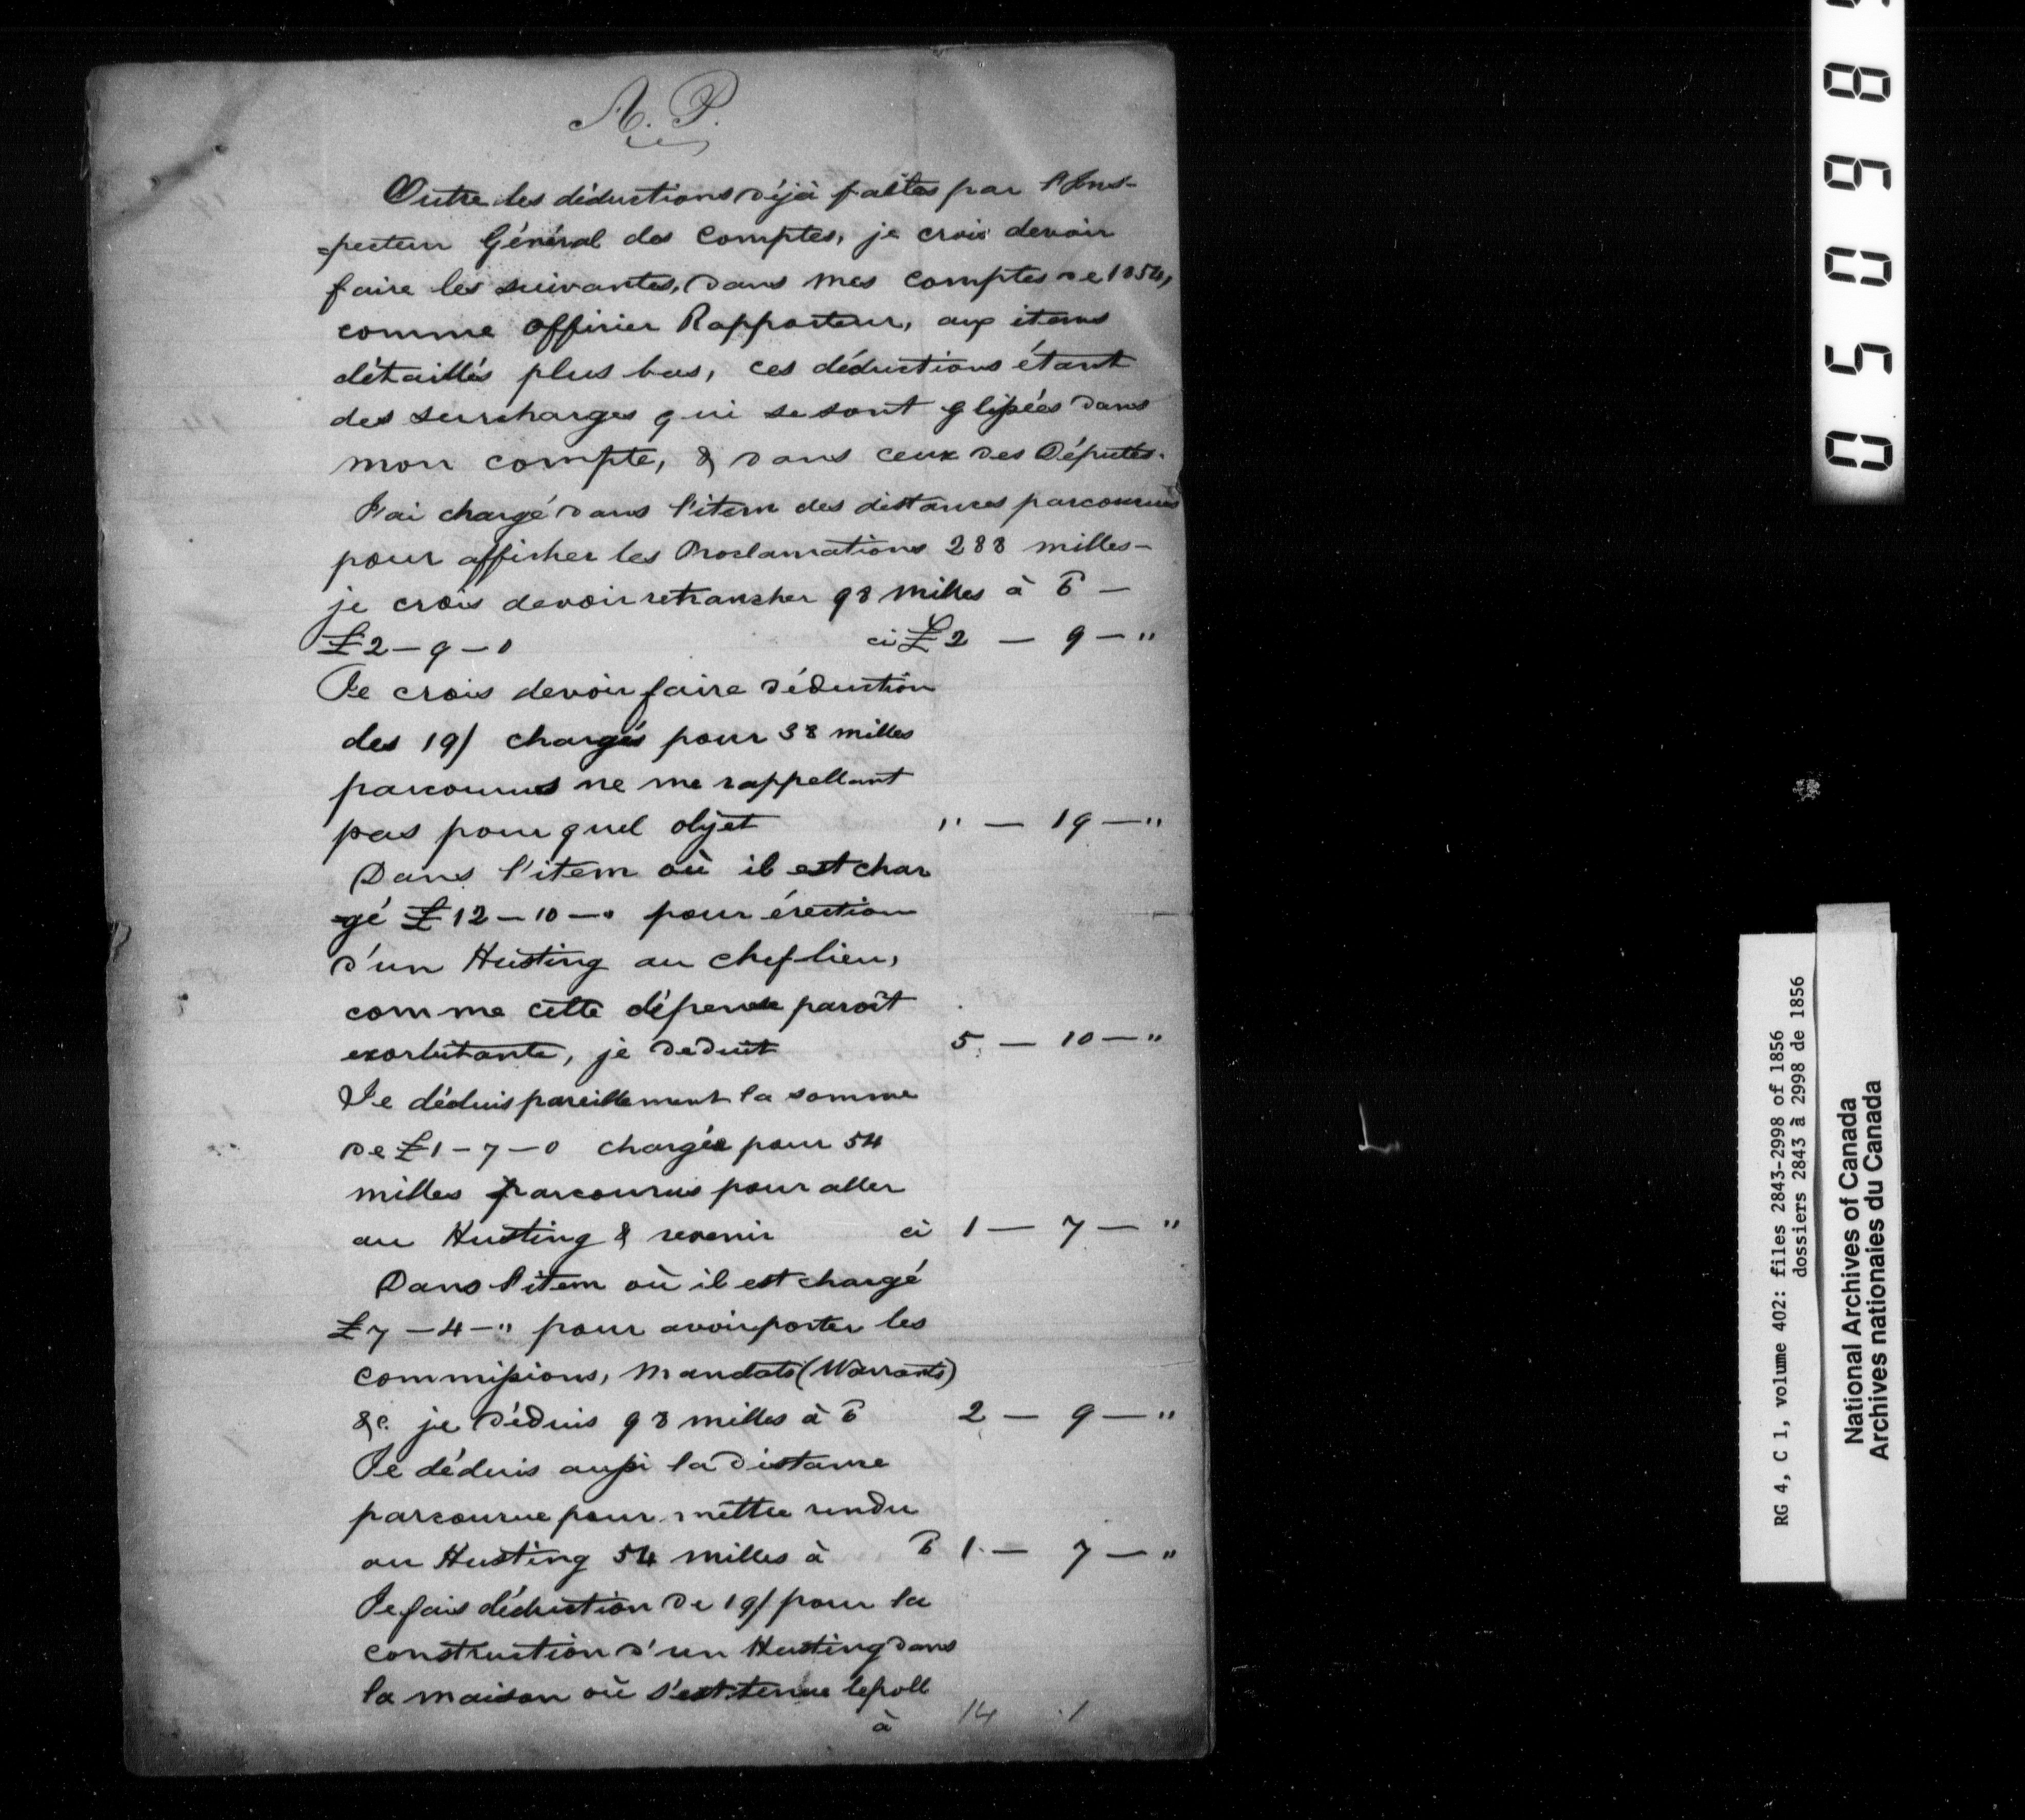 A. P.
Outre les déductions déjà faites par l'Ins-
-pecteur Général des Comptes, je crois devoir
faire les suivantes, dans mes comptes de 1854,
comme Officier Rapporteur, aux items
détaillés plus bas, ces déductions étant
des surcharges qui se sont glissées dans
mon compte, & dans ceux des Députés.
J'ai chargé dans l'item des distances parcourues
pour afficher les Proclamations 288 milles -
je crois devoir retrancher 98 milles à 6 -
£2 - 9 - 0 ci £2 - 9 - "
Je crois devoir faire déduction
des 19/ chargés pour 38 milles
parcourus ne me rappellant
pas pour quel objet " - 19 - "
Dans l'item où il est char
-gé £12 - 10 - 0 pour érection
d'un Husting au chef lieu,
comme cette dépense paroît
exorbitante, je deduit 5 - 10 - "
Je déduis pareillement la somme
de £1 - 7 - 0 chargée pour 54
milles parcourus pour aller
au Husting & revenir ci 1 - 7 - "
Dans l'item où il est chargé
£7 - 4 - " pour avoir porter les
commissions, Mandats (Warrants)
&c. je déduis 98 milles à 6 2 - 9 - "
Je déduis aussi la distance
parcourue pour mettre rendu
au Husting 54 milles à 6 1 - 7 - "
Je fais déduction de 19/ pour la
construction d'un Husting dans
la maison où s'est tenue le poll
à 14 1
05098
RG 4, C 1, volume 402: files 2843-2998 of 1856
dossiers 2843 à 2998 de 1856
National Archives of Canada
Archives nationales du Canada